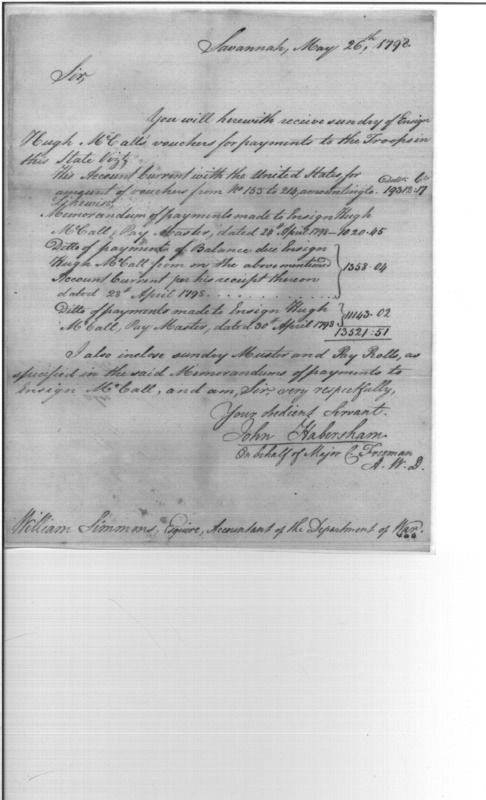 Savannah, May 26th, 1798.
Sir,
You will herewith receive sundry of Ensign
Hugh McCall's vouchers for payments to the Troops in
this State Vizt,
His Account Current with the United States for Dollr. Cts
amount of vouchers from No 153 to 214, amounting to. 19312.17
Likewise,
Memorandum of payments made to Ensign Hugh
McCall, Pay Master, dated 28th April 1798 - 1020.45
Ditto of payments of Balance due Ensign
Hugh McCall from on the above mentioned
Account Current per his receipt thereon 1358.04
dated 28th April 1798. . . . . . . . . . .
Ditto of payments made to Ensign Hugh
McCall, Pay Master, dated 30th April 1798 11143.02
13521.51
I also inclose sunday Muster and Pay Rolls, as
specified in the said Memorandums of payments to
Ensign McCall, and am, Sir, very respectfully,
Your obedient Servant.
John Habersham.
On behalf of Major C. Freeman
A. W. D.
William Simmons, Esquire, Accountant of the Department of War.